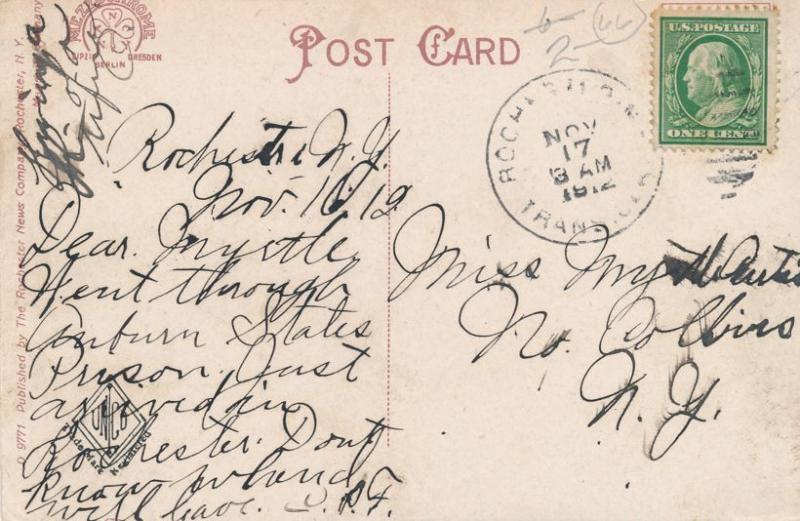 POST CARD
MEZZOCHROME
N
N Y
LEIPZIG DRESDEN
BERLIN
6
2 (66)
U.S. POSTAGE
ONE CENT
ROCHESTER, N.Y.
NOV
17
3 AM
1912
TRANSFER
Rochester N.Y
Nov. 16, 12
Dear Myrtle
Went through
Auburn States
Prison. Just
arrived in
Rochester. Dont
know when
will leave. F.
Miss Myrtle
No. Collins
N. Y.
O 9771 Published by The Rochester News Company, Rochester, N. Y.
UNICO
Trade Mark Registered